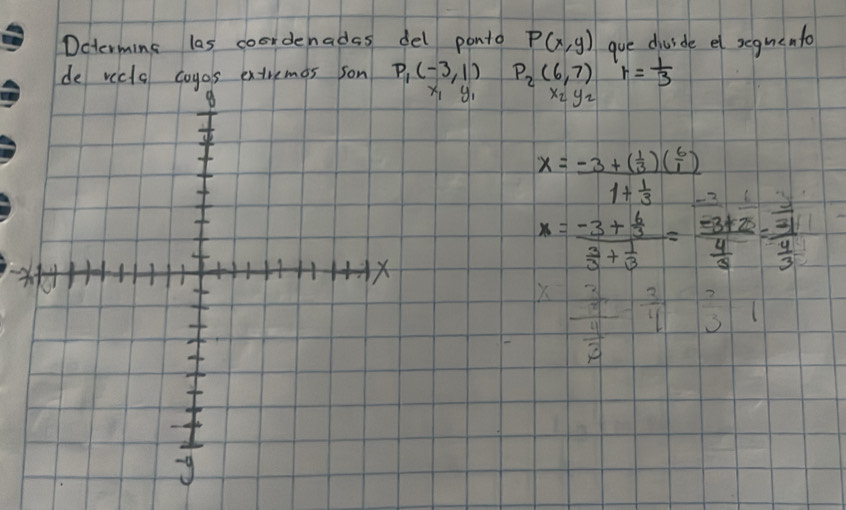 Determina las coordenadas del ponto P(x,y) que divide el segmento
de recta cuyos extremos son P₁(-3,1) P₂(6,7) r=1/3
x₁ y₁ x₂ y₂
y
x = -3+(1/3)(6/1) / 1+1/3
x = -3+6/3 / 3/3+1/3 = -3+2 / 4/3 =
-x X
-y